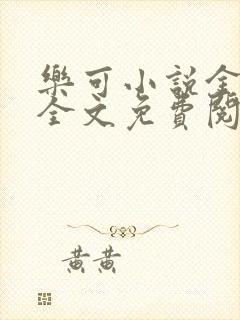 樂可小說全
全文免費閱
黃黃